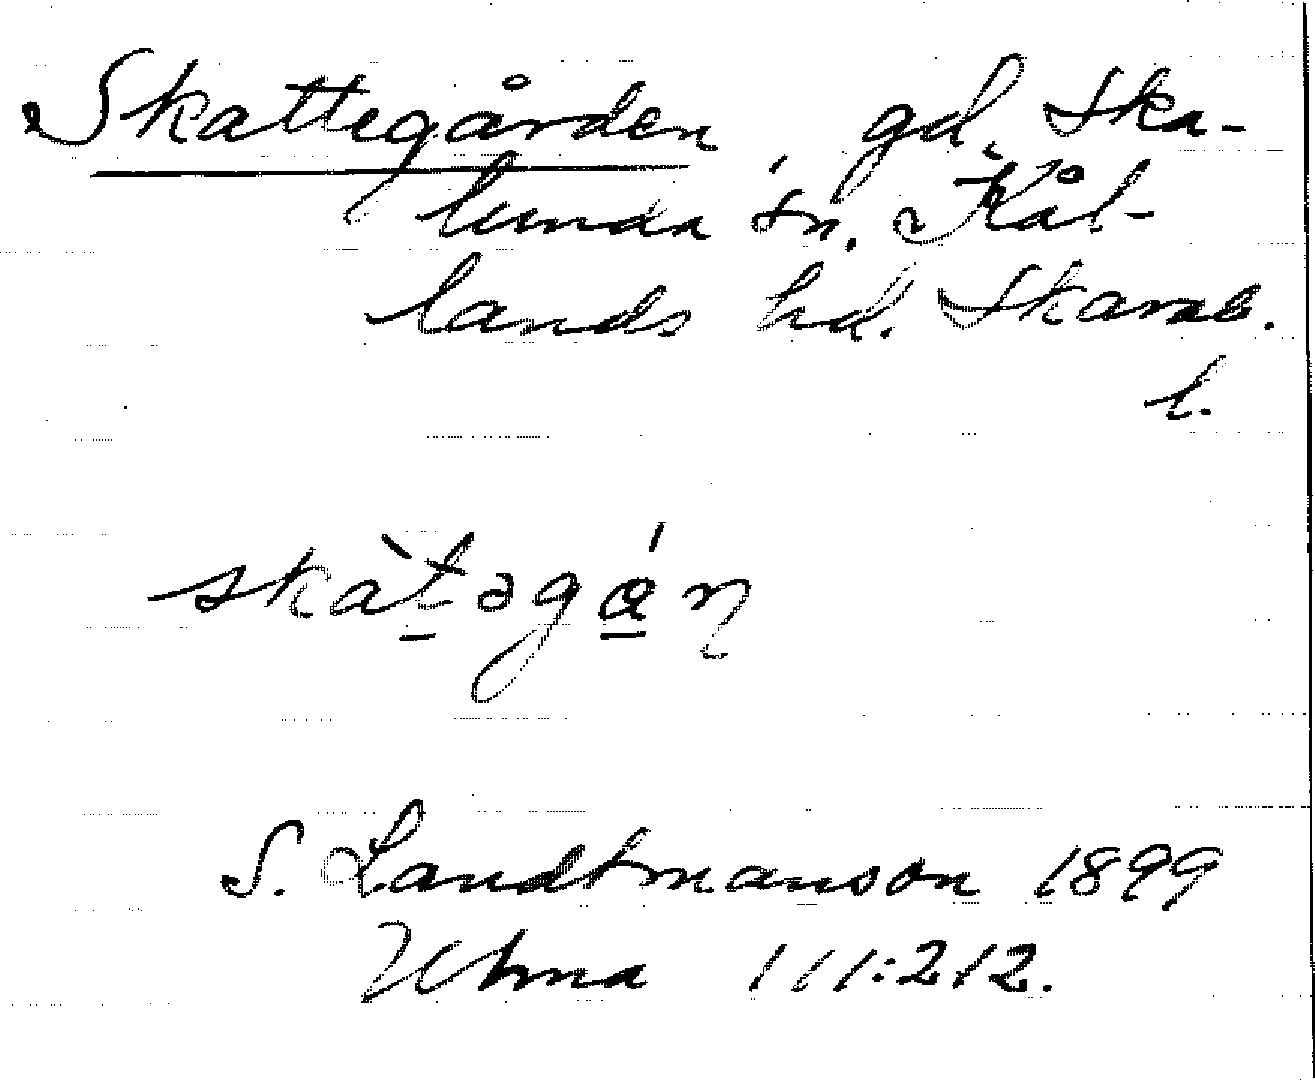 Skattegården, gd, Ska-
lunda sn. Kål-
lands hd. Skarab.
l.
skàt̠əgá̠n̢
S. Landtmanson 1899
Utma 111:212.